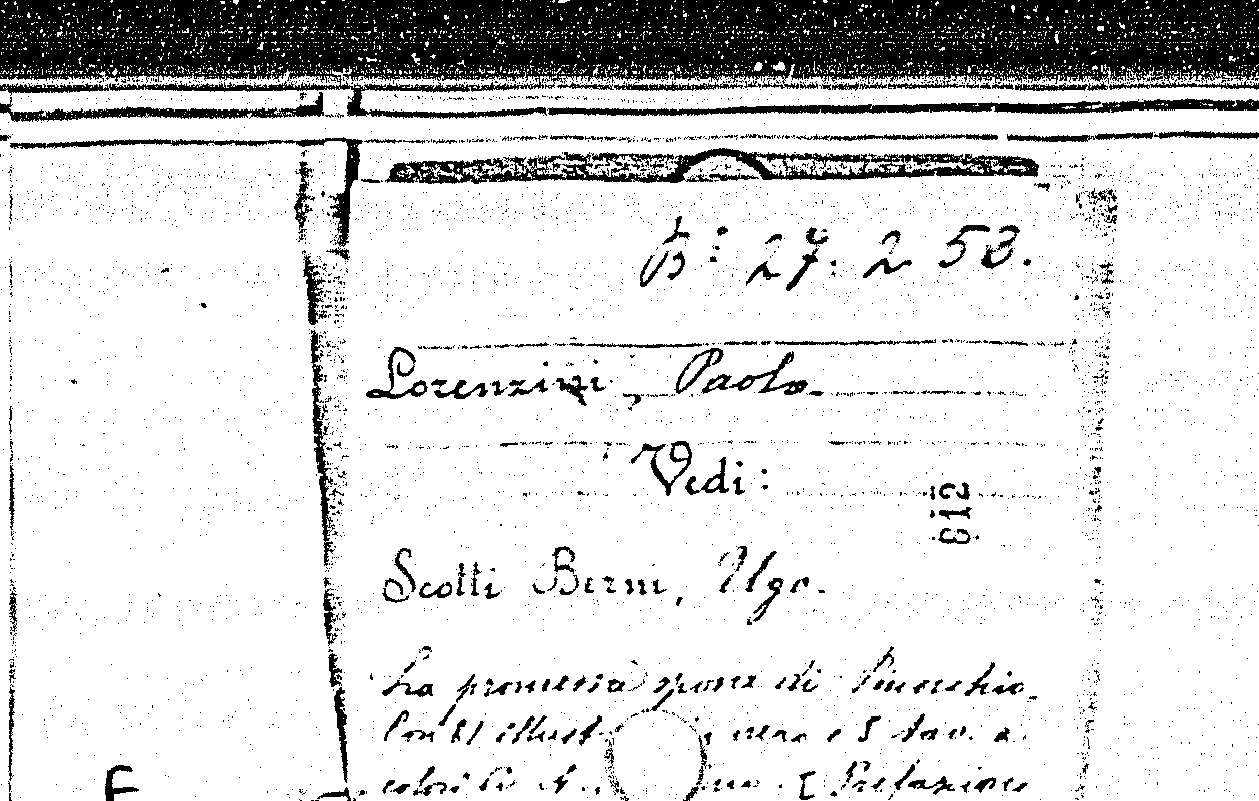 B: 27. 2. 53.
Lorenzini, Paolo.
Vedi:
612
Scotti Berni, Ugo.
La promessa sposa di Pinocchio.
Con 81 illust in nero e 5 tav. a
colori di [ Prefazione
F